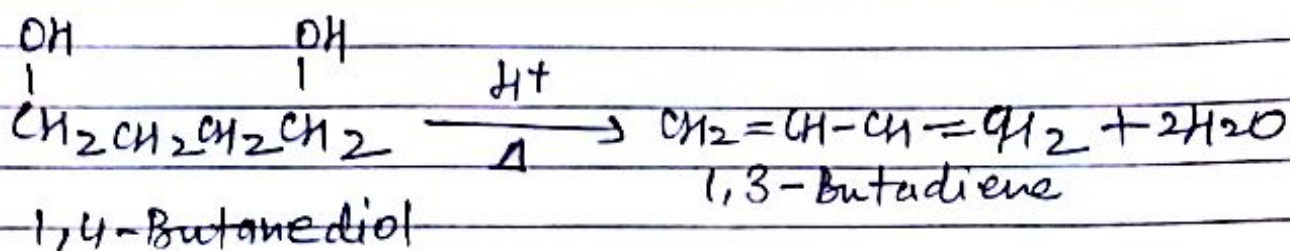 OH OH
| | H+
CH2CH2CH2CH2 ⟶ CH2=CH-CH=CH2 + 2H2O
Δ
1,3-Butadiene
1,4-Butanediol